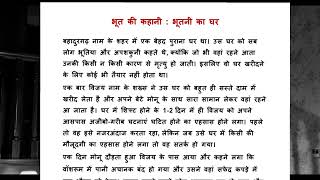 भूत की कहानी : भूतनी का घर
बहादुरगढ़ नाम के शहर में एक बेहद पुराना घर था। उस घर को सब
लोग भूतिया और अपशकुनी कहते थे, क्योंकि जो भी वहां रहने आता
उनकी किसी न किसी कारण से मृत्यु हो जाती। इसलिए वो घर खरीदने
के लिए कोई भी तैयार नहीं होता था।
एक बार विजय नाम के शख्स ने उस घर को बहुत ही सस्ते दाम में
खरीद लेता है और अपने बेटे मोनू के साथ सारा सामान लेकर वहां रहने
आ जाता है। घर में शिफ्ट होने के 1-2 दिन में ही विजय को अपने
आसपास अजीबो-गरीब घटनाएं घटित होने का एहसास होने लगा। पहले
तो वह इसे नजरअंदाज करता रहा, लेकिन जब उसे घर में किसी की
मौजूदगी का एहसास होने लगा तो वो सतर्क हो गया।
एक दिन मोनू दौड़ता हुआ विजय के पास आया और कहने लगा कि
वॉशरूम में पानी अचानक बंद हो गया और उसने वहां सफेद कपड़े में